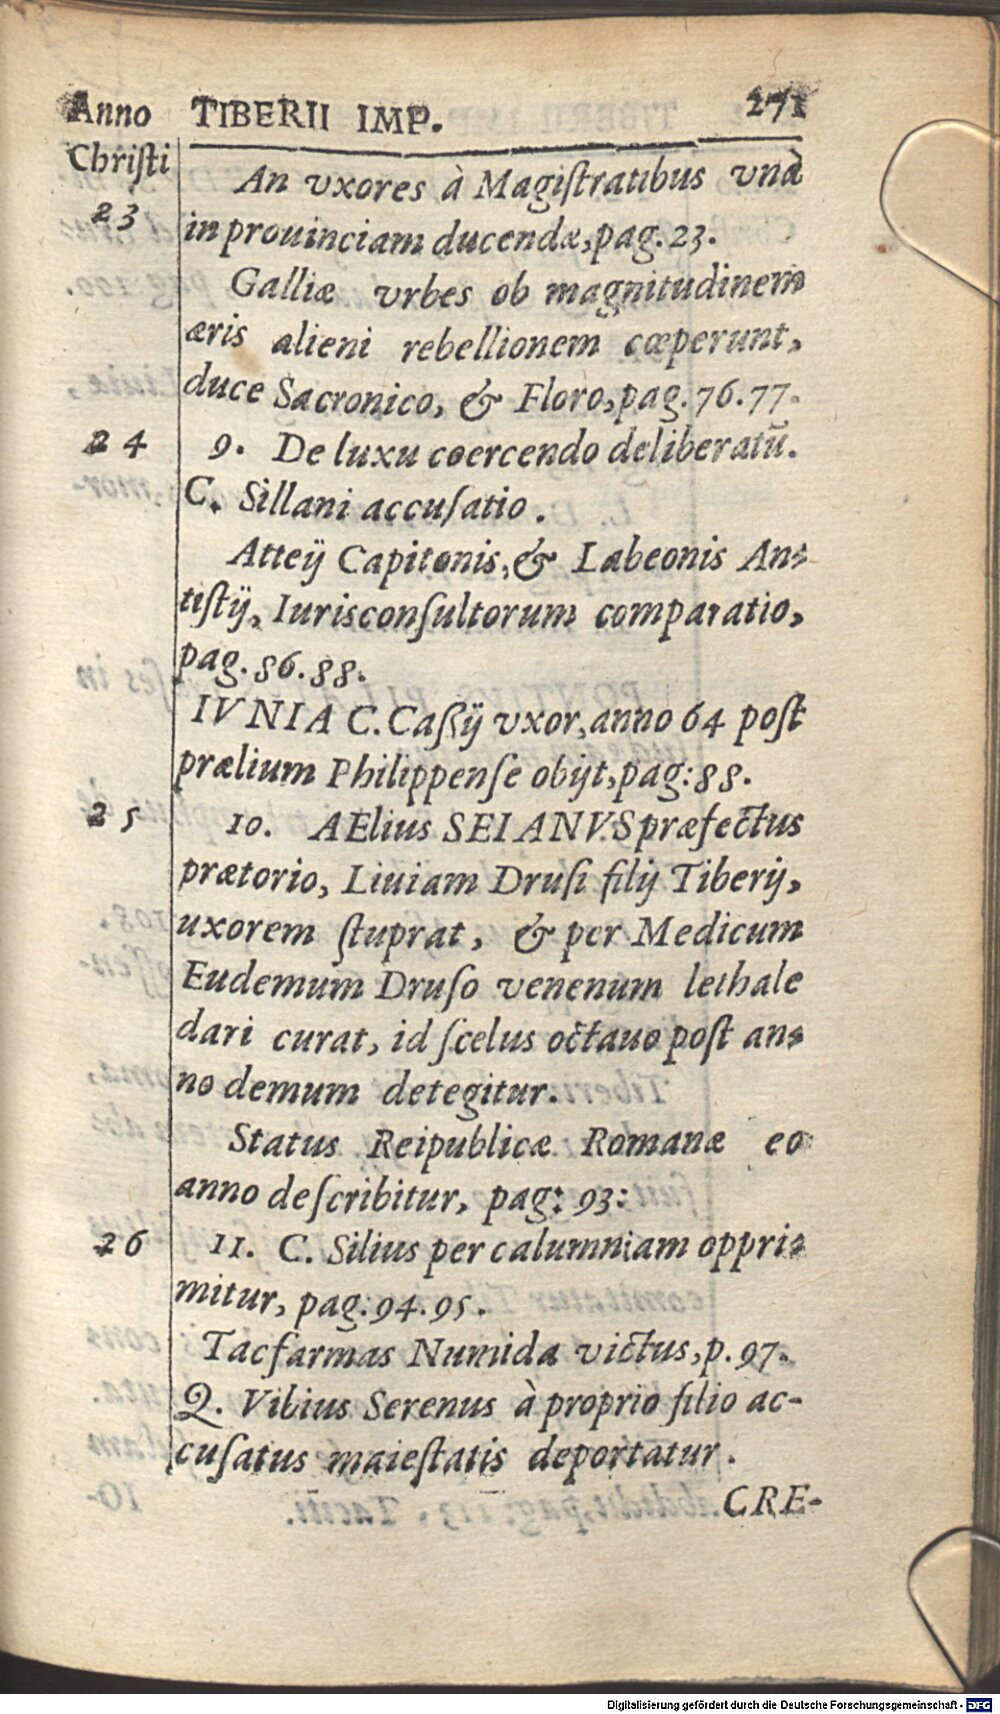 Anno TIBERII IMP. 271
Chriſti
An vxores à Magiſtratibus vnà
23
in prouinciam ducendæ, pag. 23.
Galliæ vrbes ob magnitudinem
æris alieni rebellionem cœperunt,
duce Sacronico, & Floro, pag. 76. 77.
24 9. De luxu coercendo deliberatū.
C. Sillani accuſatio.
Atteij Capitonis, & Labeonis An-
tiſtij, Iurisconſultorum comparatio,
pag. 86. 88.
IVNIA C. Caſſij vxor, anno 64 poſt
prælium Philippenſe obijt, pag: 88.
25 10. AElius SEIANVS præfectus
prætorio, Liuiam Druſi filij Tiberij,
uxorem ſtuprat, & per Medicum
Eudemum Druſo venenum lethale
dari curat, id ſcelus octauo poſt an-
no demum detegitur.
Status Reipublicæ Romanæ eo
anno deſcribitur, pag: 93:
26 11. C. Silius per calumniam oppri-
mitur, pag: 94. 95.
Tacfarmas Numida victus, p. 97.
Q. Vibius Serenus à proprio filio ac-
cuſatus maieſtatis deportatur.
CRE-
Digitalisierung gefördert durch die Deutsche Forschungsgemeinschaft - DFG